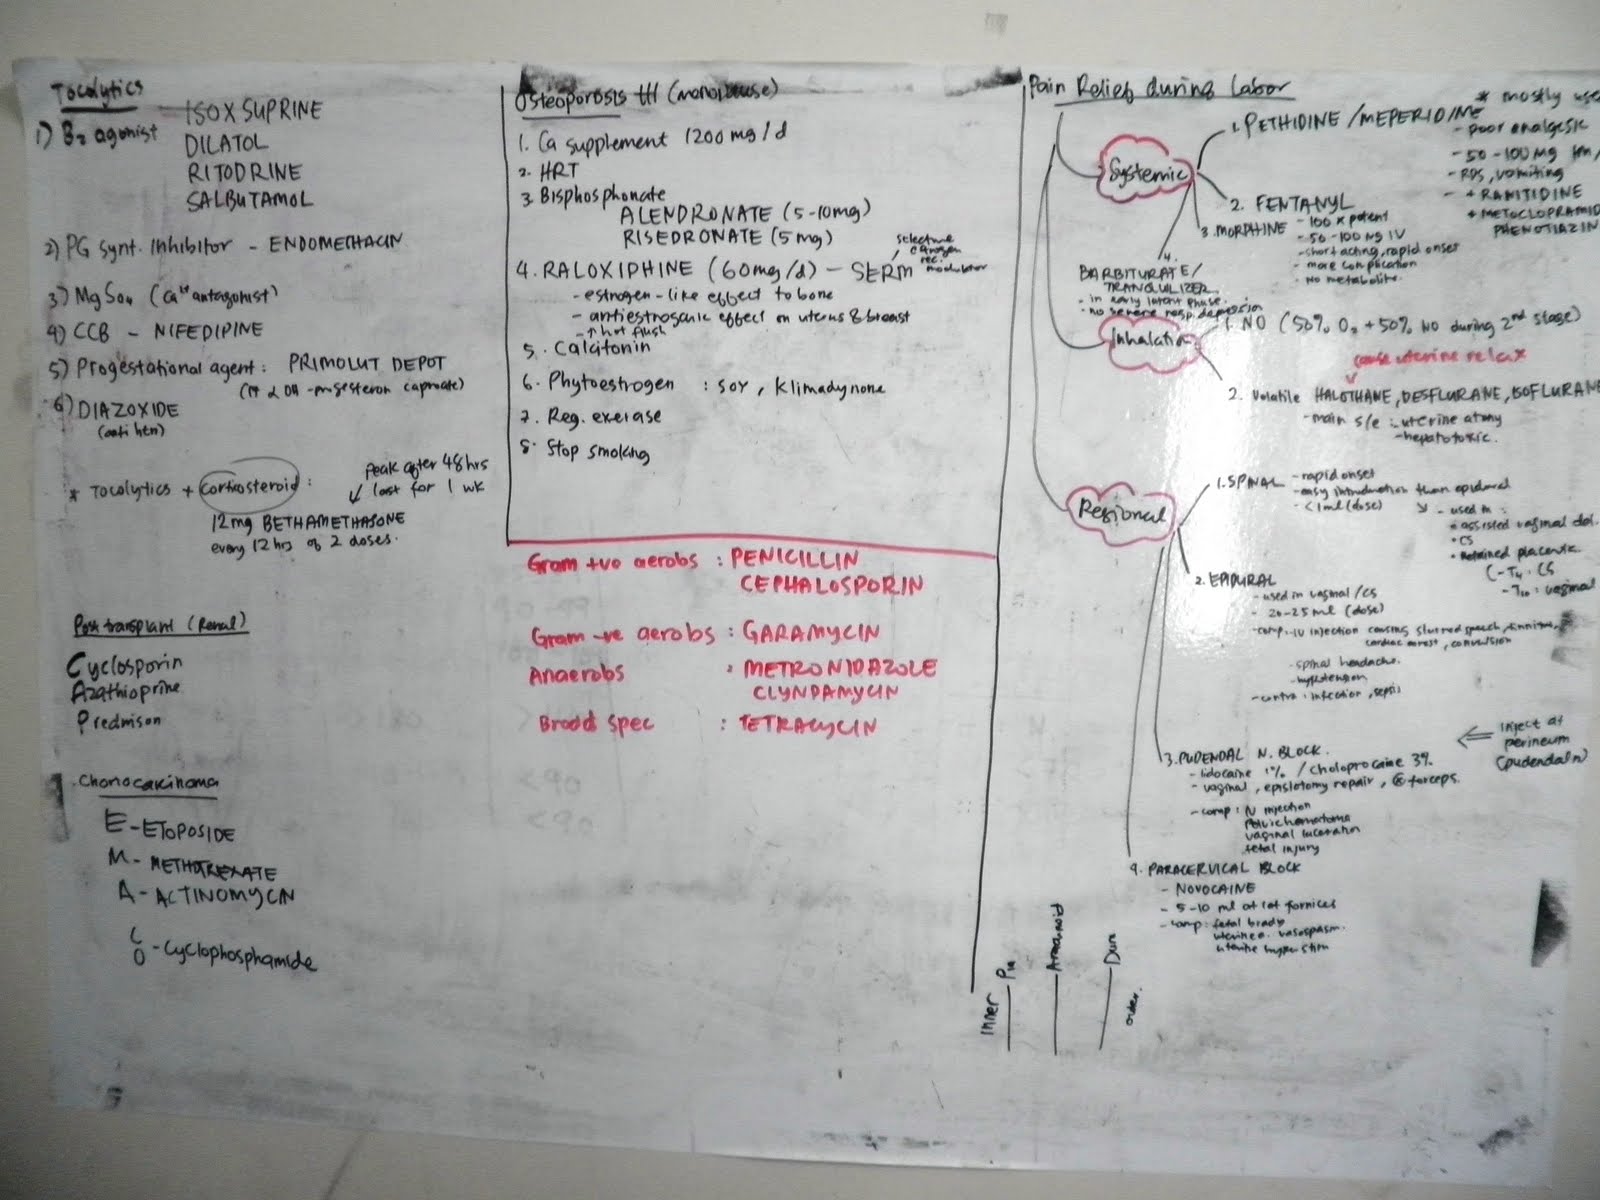 Tocolytics
1) B₂ agonist
ISOXSUPRINE
DILATOL
RITODRINE
SALBUTAMOL
2) PG Synt. Inhibitor - ENDOMETHACIN
3) MgSO4 (Ca²⁺ antagonist)
4) CCB - NIFEDIPINE
5) Progestational agent : PRIMOLUT DEPOT
(17 α OH-progesteron caproate)
6) DIAZOXIDE
(anti hen)
* Tocolytics + Corticosteroid :
peak after 48hrs
last for 1 wk
12mg BETHAMETHASONE
every 12 hrs of 2 doses.
Post transplant (Renal)
Cyclosporin
Azathioprine
Prednison
Choriocarcinoma
E - ETOPOSIDE
M - METHOTREXATE
A - ACTINOMYCIN
CO - Cyclophosphamide
Osteoporosis ttt (menopause)
1. Ca supplement 1200 mg/d
2. HRT
3. Bisphosphonate
ALENDRONATE (5-10mg)
RISEDRONATE (5mg)
4. RALOXIPHINE (60mg/d) - SERM
selective
estrogen
rec.
modulator
- estrogen-like effect to bone
- antiestrogenic effect on uterus & breast
- ↑ hot flush
5. Calcitonin
6. Phytoestrogen : SOY, Klimadynone
7. Reg. exercise
8. Stop smoking
Gram +ve aerobs : PENICILLIN
CEPHALOSPORIN
Gram -ve aerobs : GARAMYCIN
Anaerobs : METRONIDAZOLE
CLYNDAMYCIN
Broad spec : TETRACYCIN
Pain Relief during Labor
Systemic
1. PETHIDINE/MEPERIDINE
* mostly use
- poor analgesic
- 50-100 mg Im/
- RDS, vomiting
- + RANITIDINE
+ METOCLOPRAMID
PHENOTIAZIN
2. FENTANYL
- 100 x potent
- 50-100 ug IV
- short acting, rapid onset
- more complication
- no metabolite.
3. MORPHINE
4. BARBITURATE/
TRANQULIZER
- in early latent phase.
- no severe resp. depression
Inhalation
1. NO (50% O2 + 50% NO during 2nd stage)
cause uterine relax
2. Volatile HALOTHANE, DESFLURANE, ISOFLURANE
- main s/e : uterine atony
- hepatotoxic.
Regional
1. SPINAL
- rapid onset
- easy introduction than epidural
- <1ml (dose)
- used in :
• assisted vaginal del.
• CS
• Retained placenta.
- T4 : CS
- T10 : vaginal
2. EPIDURAL
- used in vaginal/CS
- 20-25 ml (dose)
- comp : IV injection causing slurred speech, tinnitus,
cardiac arrest, convulsion
- spinal headache.
- hypotension
- contra : infection, sepsis
3. PUDENDAL N. BLOCK.
- lidocaine 1% / Choloprocaine 3%
- vaginal, episiotomy repair, forceps.
- comp : N injection
Pelvic hematoma
vaginal laceration
fetal injury
inject at
perineum
(pudendal n)
4. PARACERVICAL BLOCK
- NOVOCAINE
- 5-10 ml at lat fornices
- comp : fetal brady
uterine a. vasospasm.
uterine hyperstim
inner
Pia
Arachnoid
Dura
outer.